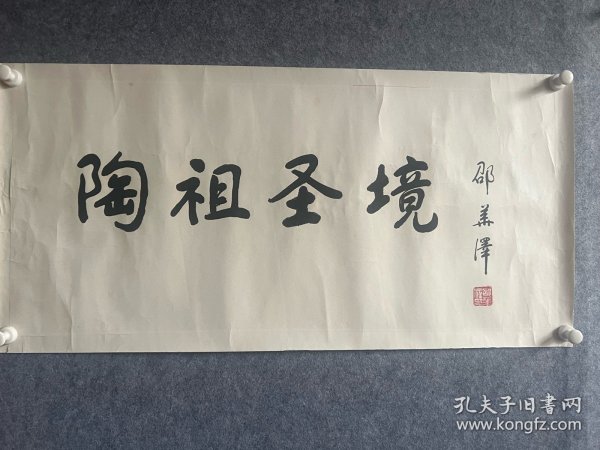 陶祖圣境
邵华泽
孔夫子旧书网
www.kongfz.com